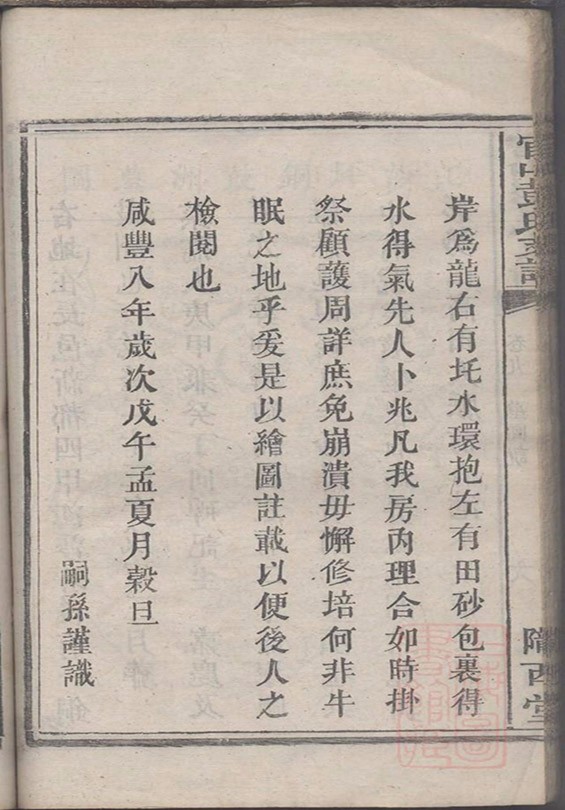 岸爲龍右有圫水環抱左有田砂包裹得
水得氣先人卜兆凡我房丙理合如時掛
祭顧護周詳庶免崩潰毋懈修培何非牛
眠之地乎爰是以繪圖註載以便後人之
檢閱也
咸豐八年歲次戊午孟夏月穀旦
嗣孫謹識